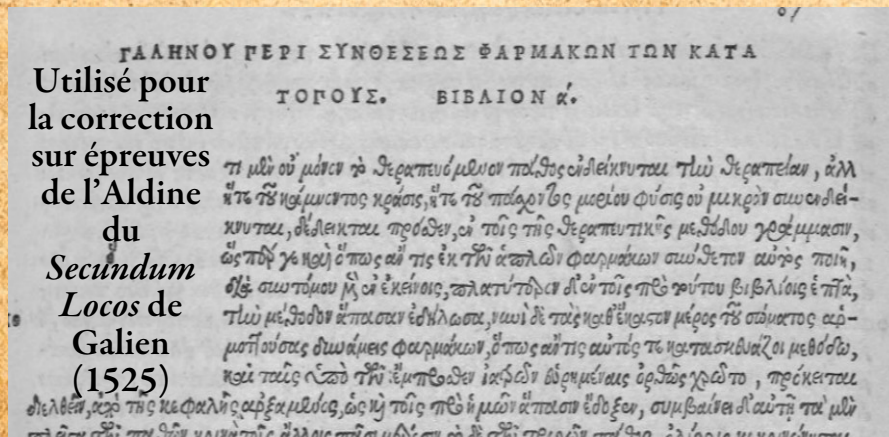 ΓΑΛΗΝΟΥ ΠΕΡΙ ΣΥΝΘΕΣΕΩΣ ΦΑΡΜΑΚΩΝ ΤΩΝ ΚΑΤΑ
ΤΟΠΟΥΣ. ΒΙΒΛΙΟΝ α΄.
Utilisé pour
la correction
sur épreuves
de l’Aldine
du
Secundum
Locos de
Galien
(1525)
τι μὲν οὐ μόνον τὸ θεραπευόμενον πάθος ἐνδείκνυται τὴν θεραπείαν, ἀλλ
ἥτε τοῦ κάμνοντος κράσις, ἥτε τοῦ πάσχοντος μορίου φύσις οὐ μικρὸν συνενδεί-
κνυται, δέδεικται πρόσθεν, ἐν τοῖς τῆς θεραπευτικῆς μεθόδου γράμμασιν,
ὥσπερ γε καὶ ὅπως ἄν τις ἐκ τῶν ἁπλῶν φαρμάκων σύνθετον αὐτὸς ποιῇ,
διὰ συντόμου μὲν ἐν ἐκείνοις, πλατύτερον δ’ ἐν τοῖς πρὸ τούτου βιβλίοις ἑπτά,
τὴν μέθοδον ἅπασαν ἐδήλωσα, νυνὶ δὲ τὰς καθ’ ἕκαστον μέρος τοῦ σώματος ἁρ-
μοττούσας δυνάμεις φαρμάκων, ὅπως ἄν τις αὐτός τε κατασκευάζοι μεθόδῳ,
καὶ ταῖς ὑπὸ τῶν ἔμπροσθεν ἰατρῶν εὑρημέναις ὀρθῶς χρῷτο, πρόκειται
διελθεῖν, ἀπὸ τῆς κεφαλῆς ἀρξαμένος, ὡς καὶ τοῖς πρὸ ἡμῶν ἅπασιν ἔδοξεν, συμβαίνει δ’ αὐτῇ τὰ μὲν